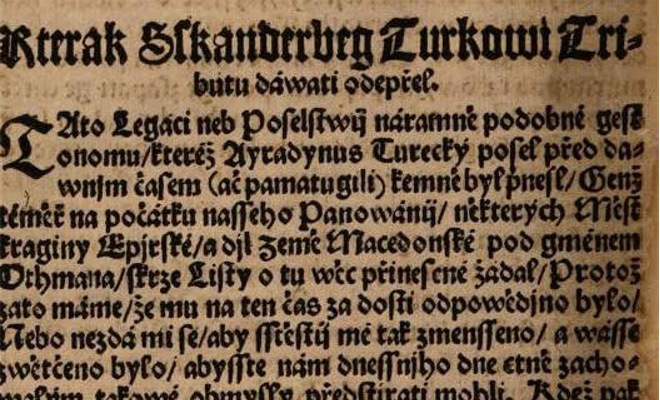 Kterak Sskanderbeg Turkowi Tri-
butu dáwati odepřel.
TAto Legaci neb Poselstwij náramně podobné gest
onomu/kteréž Ayradynus Turecký posel před da-
wnjm časem (ač pamatugili) kemně byl přnesl/ Genž
téměř na počátku nasseho Panowánij/ některých Měst
kraginy Epjrské/a djl Země Macedonské pod gménem
Othmana/skrze Listy o tu wěc přinesené žádal/Protož
zato máme/že mu na ten čas za dosti odpowědjno bylo/
Nebo nezdá mi se/aby sstěstij mé tak zmensseno/ a wásse
zwětčeno bylo/ abysste nám dnessnjho dne ctně zacho-
malým takowé obmysly předstjrati mohli. Kdež pak